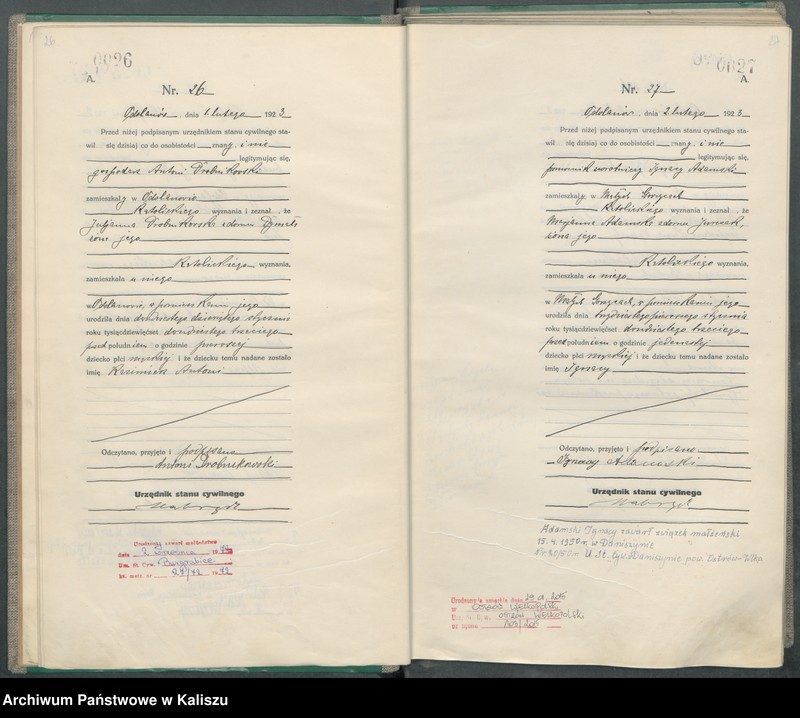 26
0026
A.
Nr. 26
Odolanów, dnia 1. lutego 1923
Przed niżej podpisanym urzędnikiem stanu cywilnego sta-
wił się dzisiaj co do osobistości znany i nie
legitymując się,
gospodarz Antoni Drobnikowski
zamieszkały w Odolanowie
Katolickiego wyznania i zeznał, że
Julianna Drobnikowska z domu
żona jego
Katolickiego wyznania,
zamieszkała u niego
w Odolanowie, w pomieszkaniu jego
urodziła dnia dwudziestego dziewiątego stycznia
roku tysiącdziewięćset dwudziestego trzeciego
przed południem o godzinie pierwszej
dziecko płci męskiej i że dziecku temu nadane zostało
imię Kazimierz Antoni
Odczytano, przyjęto i podpisano
Antoni Drobnikowski
Urzędnik stanu cywilnego
data 2 września
Urz. St. Cyw.
27/42 1942
27
0027
A.
Nr. 27
Odolanów, dnia 2. lutego 1923
Przed niżej podpisanym urzędnikiem stanu cywilnego sta-
wił się dzisiaj co do osobistości znany i nie
legitymując się,
pomocnik zwrotniczy Ignacy Adamski
zamieszkały w
Katolickiego wyznania i zeznał, że
Marjanna Adamska z domu
żona jego
Katolickiego wyznania,
zamieszkała u niego
w w pomieszkaniu jego
urodziła dnia trzydziestego pierwszego stycznia
roku tysiącdziewięćset dwudziestego trzeciego
przed południem o godzinie jedenastej
dziecko płci męskiej i że dziecku temu nadane zostało
imię Ignacy
Odczytano, przyjęto i podpisano
Ignacy Adamski
Urzędnik stanu cywilnego
Adamski Ignacy zawarł związek małżeński
15.4.1950 r. w Daniszynie
U. St. Cyw. Daniszynie pow. Ostrów-Wlkp
Archiwum Państwowe w Kaliszu